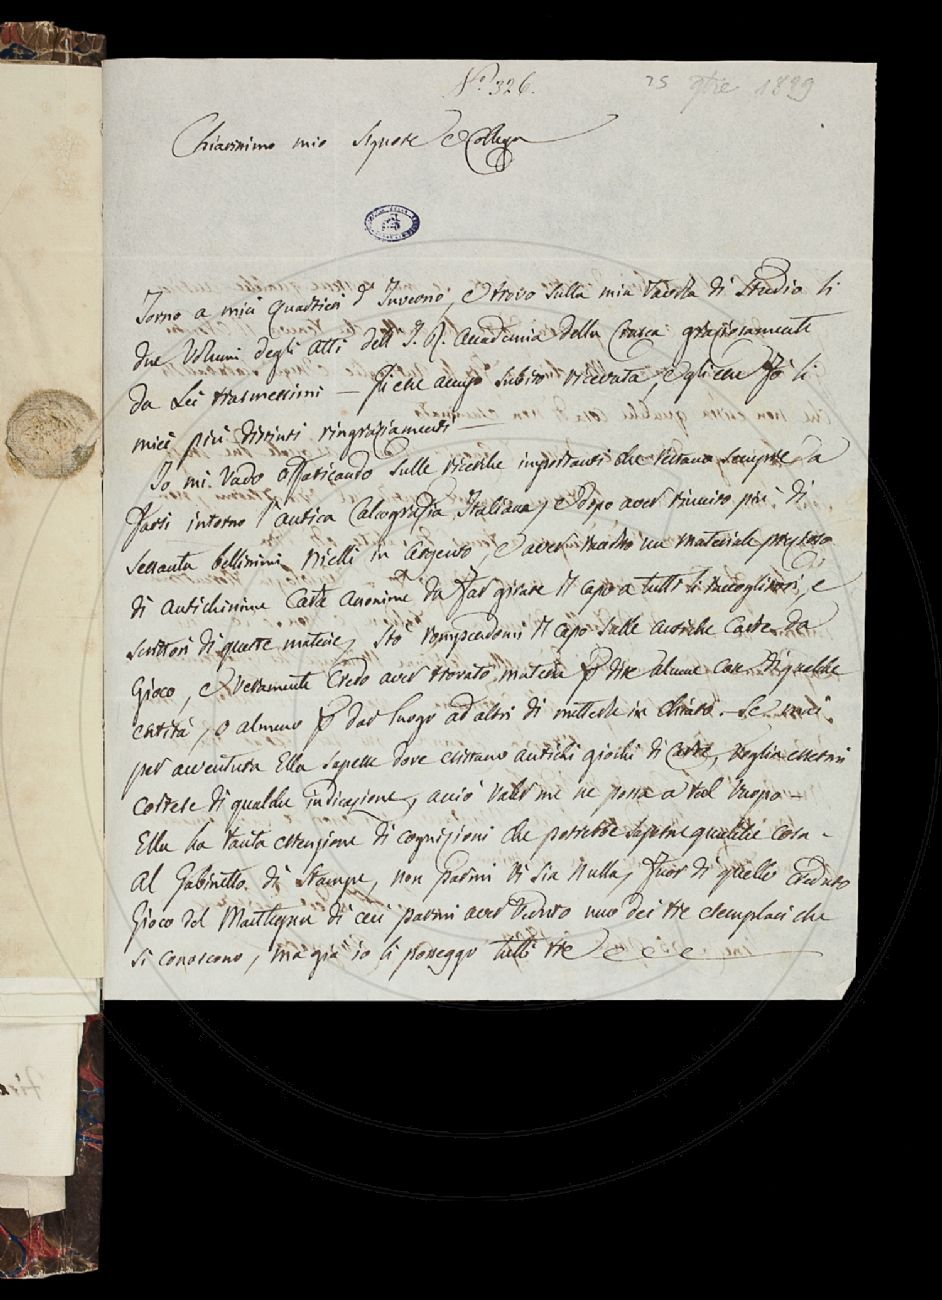 N.° 326.
25 9bre 1829
Chiarissimo mio Signore e Collega
Torno a miei quartieri d'Inverno, e trovo sulla mia tavola di studio li
due Volumi degli atti dell'I. R. Accademia della Crusca graziosamente
da Lei trasmessimi — Ne accuso subito ricevuta, e gliene fò li
miei più distinti ringraziamenti —
Io mi vado affaticando sulle ricerche importanti che restano sempre da
farsi intorno l'antica Calcografia Italiana, e dopo aver riunito più di
sessanta bellissimi nielli in argento, e aver un materiale prezioso
di antichissime Carte anonime da far girare il capo a tutti li raccoglitori, e
scrittori di queste materie, stò rompendomi il capo sulle antiche Carte da
Gioco, e veramente credo aver trovato materia p dire alcune cose di qualche
entità, o almeno p dar luogo ad altri di metterle in chiaro. — Se mai
per avventura Ella sapesse dove esistano antichi giochi di Carte, voglia essermi
cortese di qualche indicazione, acciò valermene possa a tal uopo —
Ella ha tanta estensione di cognizioni che potrebbe saperne qualche cosa —
Al Gabinetto di Stampe, non parmi vi sia nulla, fuor di quello creduto
Gioco del Mantegna di cui parmi aver veduto uno dei tre esemplari che
si conoscono, ma già io li posseggo tutti tre e e e